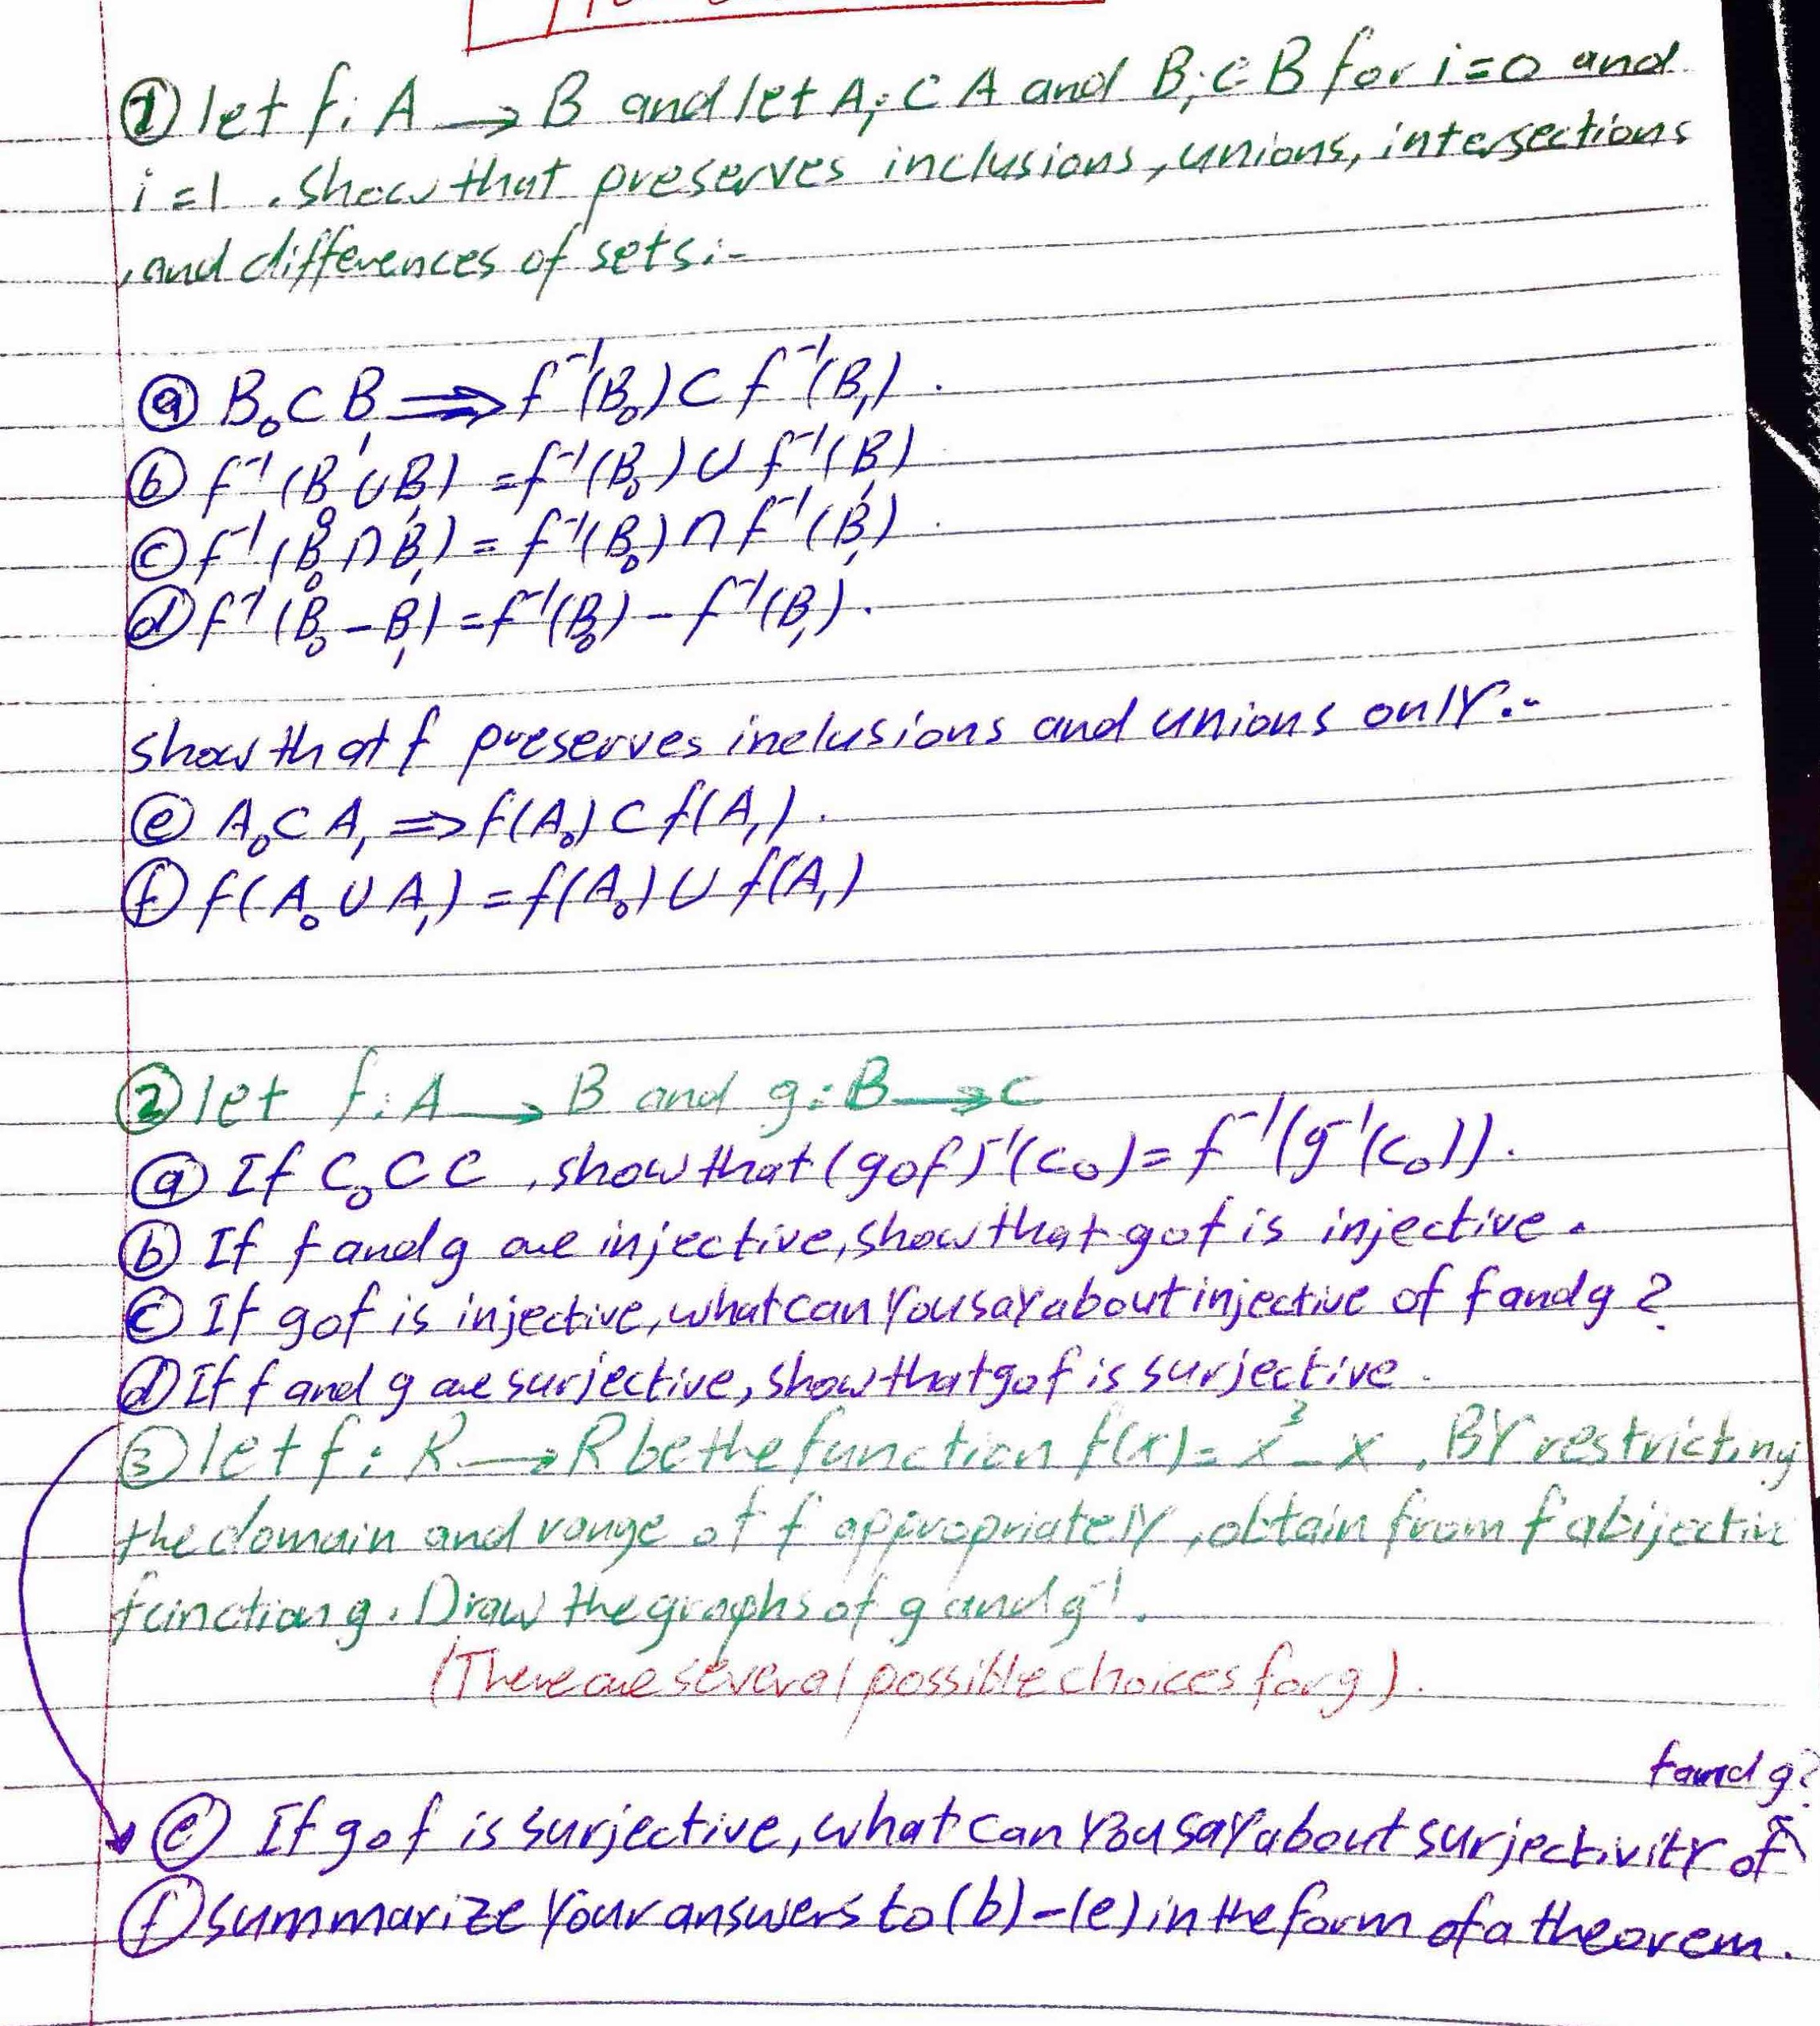 ① let f: A → B and let Aᵢ ⊂ A and Bᵢ ⊂ B for i=0 and
i=1. Show that preserves inclusions, unions, intersections
, and differences of sets:-
ⓐ B₀ ⊂ B₁ ⟹ f⁻¹(B₀) ⊂ f⁻¹(B₁).
ⓑ f⁻¹(B₀ ∪ B₁) = f⁻¹(B₀) ∪ f⁻¹(B₁)
ⓒ f⁻¹(B₀ ∩ B₁) = f⁻¹(B₀) ∩ f⁻¹(B₁).
ⓓ f⁻¹(B₀ − B₁) = f⁻¹(B₀) − f⁻¹(B₁).
show that f preserves inclusions and unions only:-
ⓔ A₀ ⊂ A₁ ⟹ f(A₀) ⊂ f(A₁).
ⓕ f(A₀ ∪ A₁) = f(A₀) ∪ f(A₁)
② let f: A → B and g: B → C
ⓐ If C₀ ⊂ C, show that (gof)⁻¹(C₀) = f⁻¹(g⁻¹(C₀)).
ⓑ If f and g are injective, show that gof is injective.
ⓒ If gof is injective, what can you say about injective of f and g?
ⓓ If f and g are surjective, show that gof is surjective.
③ let f: R → R be the function f(x) = x³ − x. By restricting
the domain and range of f appropriately, obtain from f a bijective
function g. Draw the graphs of g and g⁻¹.
(There are several possible choices for g).
f and g?
ⓔ If gof is surjective, what can you say about surjectivity of
ⓕ summarize your answers to (b)-(e) in the form of a theorem.